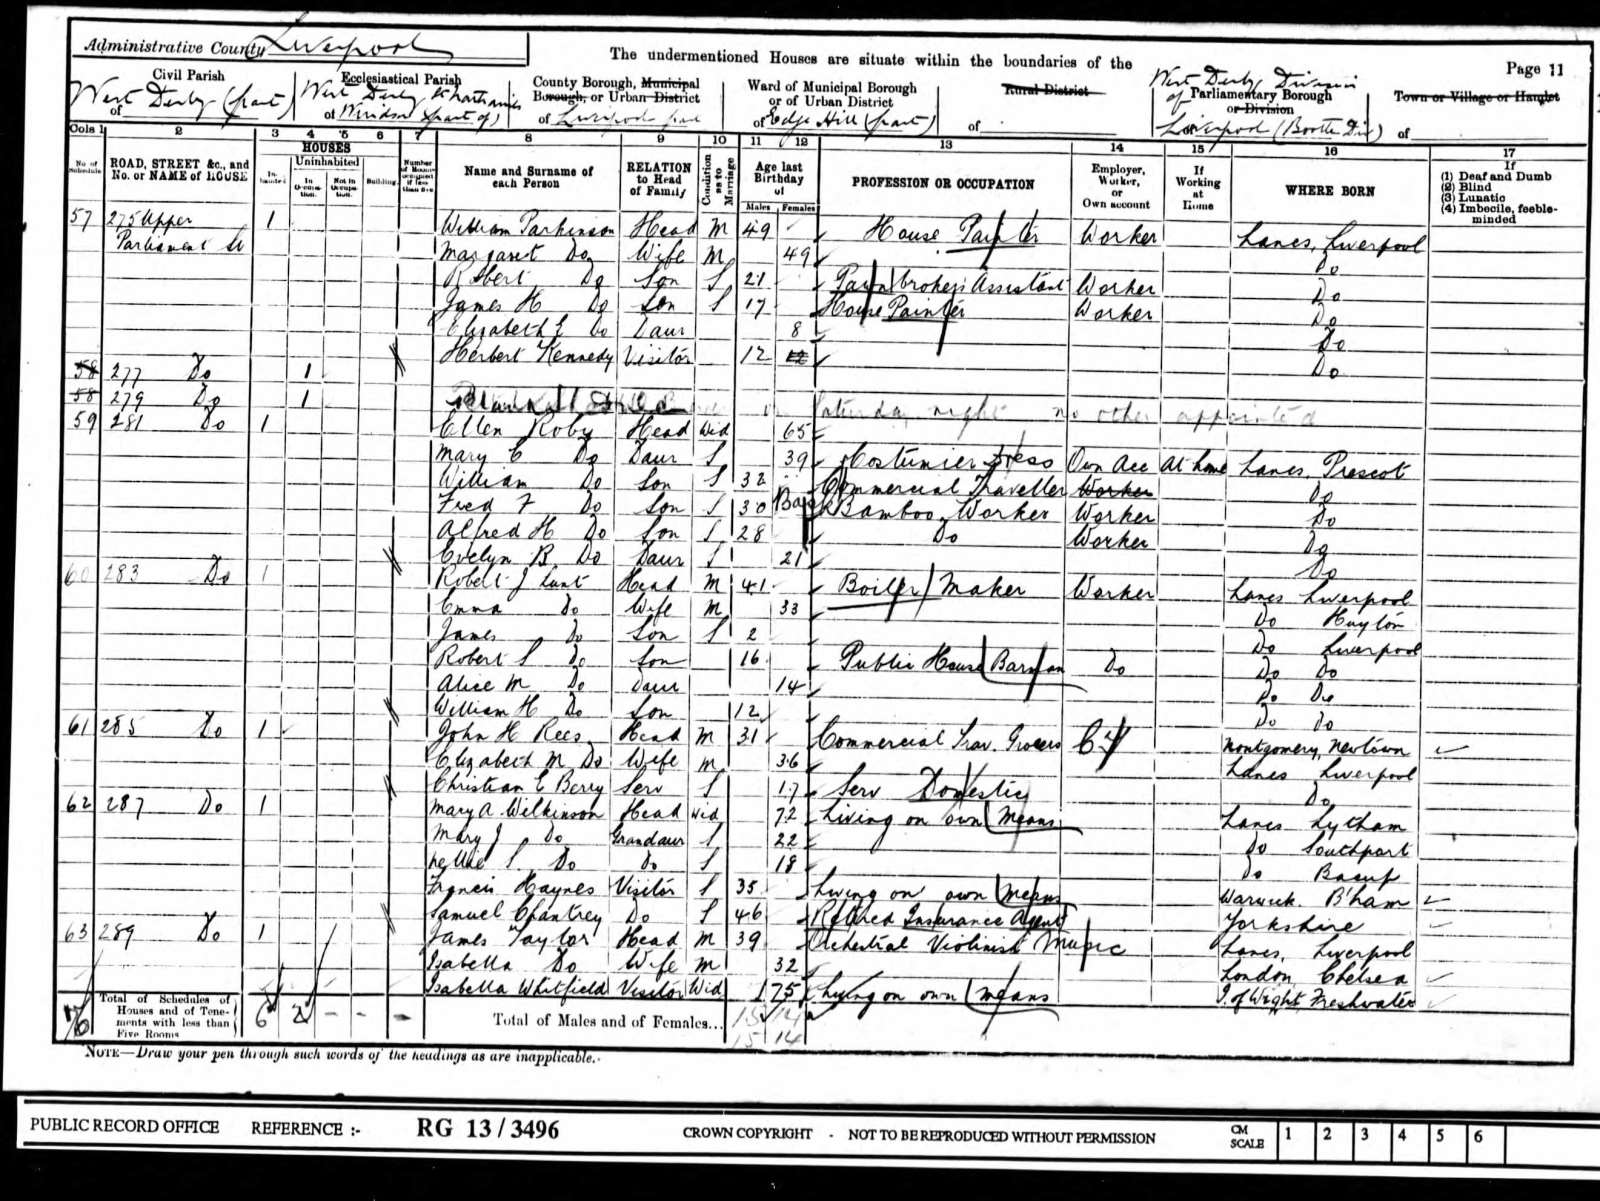 Administrative County Liverpool
The undermentioned Houses are situate within the boundaries of the
Page 11
Civil Parish of West Derby (part)
Ecclesiastical Parish of West Derby St Nathaniel's Windsor (part of)
County Borough, Municipal Borough, or Urban District of Liverpool part
Ward of Municipal Borough or of Urban District of Edge Hill (part)
Rural District of
Parliamentary Borough or Division of West Derby Division of Liverpool (Bootle Div)
Town or Village or Hamlet of
Cols 1 2 3 4 5 6 7 8 9 10 11 12 13 14 15 16 17
No. of Schedule
ROAD, STREET &c., and No. or NAME of HOUSE
HOUSES
Inhabited
Uninhabited
In Occupation.
Not in Occupation.
Building.
Number of Rooms occupied if less than five
Name and Surname of each Person
RELATION to Head of Family
Condition as to Marriage
Age last Birthday of
Males Females
PROFESSION OR OCCUPATION
Employer, Worker, or Own account
If Working at Home
WHERE BORN
If
(1) Deaf and Dumb
(2) Blind
(3) Lunatic
(4) Imbecile, feeble-minded
57 275 Upper Parliament St 1 William Parkinson Head M 49 House Painter Worker Lancs, Liverpool
Margaret Do Wife M 49 Do
Robert Do Son S 21 Pawnbroker's Assistant Worker Do
James H Do Son S 17 House Painter Worker Do
Elizabeth E Do Daur 8 Do
Herbert Kennedy Visitor 12 12 Do
58 277 Do 1
58 279 Do 1 Saturday night no other appointed
59 281 Do 1 Ellen Roby Head Wid 65
Mary E Do Daur S 39 Costumier Dress Own Acc At home Lancs, Prescot
William Do Son S 32 Commercial Traveller Worker Do
Fred F Do Son S 30 Bamboo Worker Worker Do
Alfred H Do Son S 28 Do Worker Do
Evelyn B Do Daur S 21 Do
60 283 Do 1 Robert J Lunt Head M 41 Boiler Maker Worker Lancs Liverpool
Emma Do Wife M 33 Do Huyton
James Do Son S 2 Do Liverpool
Robert S Do Son 16 Public House Barman Do Do Do
Alice M Do Daur 14 Do Do
William H Do Son 12 Do Do
61 285 Do 1 John H Rees Head M 31 Commercial Trav. Grocers Montgomery, Newtown
Elizabeth M Do Wife M 36 Lancs Liverpool
Christian E Berry Serv S 17 Serv Domestic Do
62 287 Do 1 Mary A. Wilkinson Head Wid 72 Living on own Means Lancs Lytham
Mary J Do Grandaur S 22 Do Southport
Nellie S Do Do S 18 Do Bacup
Francis Haynes Visitor S 35 Living on own Means Warwick. B'ham
Samuel Chantrey Do S 46 Retired Insurance Agent Yorkshire
63 289 Do 1 James Taylor Head M 39 Orchestral Violinist Music Lancs, Liverpool
Isabella Do Wife M 32 London Chelsea
Isabella Whitfield Visitor Wid 75 Living on own means I. of Wight, Freshwater
Total of Schedules of Houses and of Tenements with less than Five Rooms 6 2 - - -
Total of Males and of Females... 15 14
15 14
NOTE—Draw your pen through such words of the headings as are inapplicable.
PUBLIC RECORD OFFICE REFERENCE :- RG 13 / 3496 CROWN COPYRIGHT - NOT TO BE REPRODUCED WITHOUT PERMISSION CM SCALE 1 2 3 4 5 6